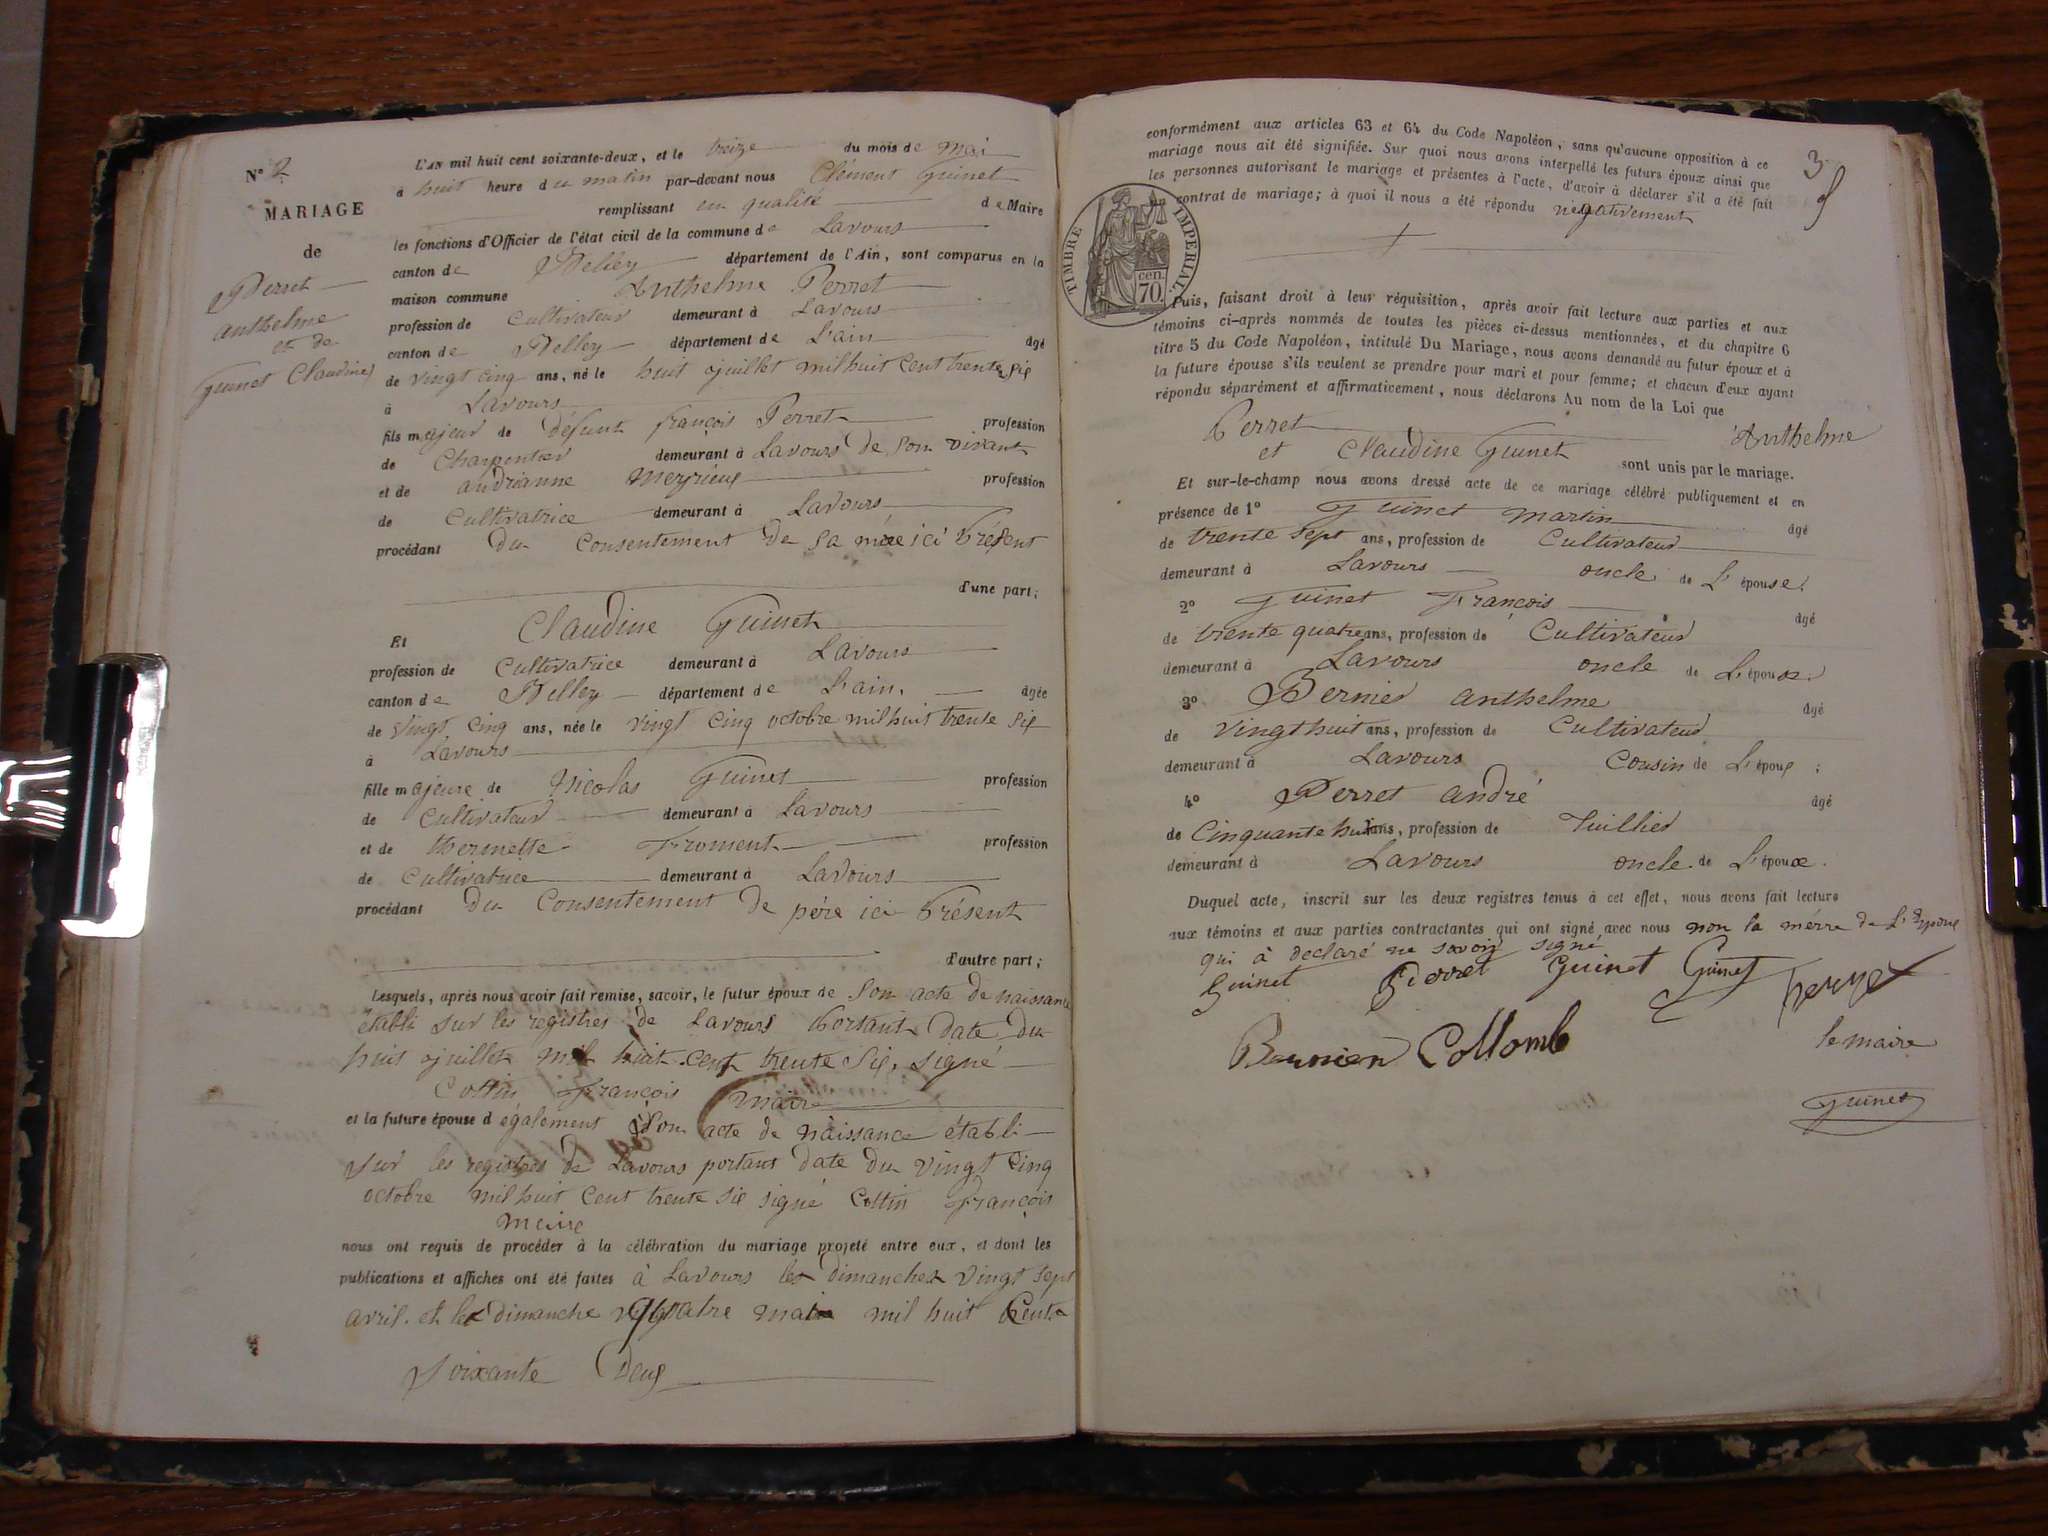 N° 2
MARIAGE
de
Perret
anthelme
et de
Guinet Claudine
L'AN mil huit cent soixante-deux, et le treize du mois de Mai
à huit heure du matin par-devant nous Clément Guinet
remplissant en qualité de Maire
les fonctions d'Officier de l'état civil de la commune de Lavours
canton de Belley département de l'Ain, sont comparus en la
maison commune Anthelme Perret
profession de Cultivateur demeurant à Lavours
canton de Belley département de L'ain âgé
de vingt cinq ans, né le huit juillet mil huit cent trente six
à Lavours
fils majeur de défunt françois Perret profession
de Charpentier demeurant à Lavours de Son vivant
et de andrianne Meyrieux profession
de Cultivatrice demeurant à Lavours
procédant du Consentement de sa mère ici Présent
d'une part;
Et Claudine Guinet
profession de Cultivatrice demeurant à Lavours
canton de Belley département de L'ain. âgée
de vingt cinq ans, née le vingt cinq octobre mil huit trente six
à Lavours
fille majeure de Nicolas Guinet profession
de Cultivateur demeurant à Lavours
et de thermette Froment profession
de Cultivatrice demeurant à Lavours
procédant du Consentement de père ici Présent
d'autre part;
Lesquels, après nous avoir fait remise, savoir, le futur époux de Son acte de naissance
établi sur les registres de Lavours Portant date du
huit juillet mil huit cent trente six, signé
Cottin François maire
et la future épouse d également Son acte de naissance établi
sur les registres de Lavours portant date du vingt cinq
octobre mil huit cent trente six signé Cottin François
maire
nous ont requis de procéder à la célébration du mariage projeté entre eux, et dont les
publications et affiches ont été faites à Lavours les dimanches vingt sept
avril. et le dimanche quatre mai mil huit Cent
Soixante Deux
3
conformément aux articles 63 et 64 du Code Napoléon, sans qu'aucune opposition à ce
mariage nous ait été signifiée. Sur quoi nous avons interpellé les futurs époux ainsi que
les personnes autorisant le mariage et présentes à l'acte, d'avoir à déclarer s'il a été fait
un contrat de mariage; à quoi il nous a été répondu négativement
TIMBRE IMPERIAL
70 cen.
Puis, faisant droit à leur réquisition, après avoir fait lecture aux parties et aux
témoins ci-après nommés de toutes les pièces ci-dessus mentionnées, et du chapitre 6
titre 5 du Code Napoléon, intitulé Du Mariage, nous avons demandé au futur époux et à
la future épouse s'ils veulent se prendre pour mari et pour femme; et chacun d'eux ayant
répondu séparément et affirmativement, nous déclarons Au nom de la Loi que
Perret Anthelme
et Claudine Guinet sont unis par le mariage.
Et sur-le-champ nous avons dressé acte de ce mariage célébré publiquement et en
présence de 1° Guinet Martin âgé
de trente sept ans, profession de Cultivateur
demeurant à Lavours oncle de L'épouse.
2° Guinet François âgé
de trente quatre ans, profession de Cultivateur
demeurant à Lavours oncle de L'épouse.
3° Bernier anthelme âgé
de vingthuit ans, profession de Cultivateur
demeurant à Lavours Cousin de L'époux;
4° Perret andré âgé
de Cinquante huit ans, profession de Tuillier
demeurant à Lavours oncle de L'époux.
Duquel acte, inscrit sur les deux registres tenus à cet effet, nous avons fait lecture
aux témoins et aux parties contractantes qui ont signé avec nous non la mérre de L'Epoux
qui à déclaré ne savoir signé
Guinet Perret Guinet Guinet Perret
Bernier Collomb le maire
Guinet